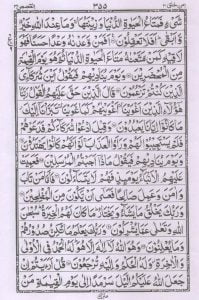 امن خلق ۲۰ ۳۵۵ القصص ۲۸
شَیْءٍ فَمَتَاعُ الْحَيٰوةِ الدُّنْيَا وَزِيْنَتُهَا ۚ وَمَا عِنْدَ اللّٰهِ خَيْرٌ
وَّاَبْقٰى ؕ اَفَلَا تَعْقِلُوْنَ ۞ اَفَمَنْ وَّعَدْنٰهُ وَعْدًا حَسَنًا فَهُوَ
لَاقِيْهِ كَمَنْ مَّتَّعْنٰهُ مَتَاعَ الْحَيٰوةِ الدُّنْيَا ثُمَّ هُوَ يَوْمَ الْقِيٰمَةِ
مِنَ الْمُحْضَرِيْنَ ۞ وَيَوْمَ يُنَادِيْهِمْ فَيَقُوْلُ اَيْنَ شُرَكَآءِىَ
الَّذِيْنَ كُنْتُمْ تَزْعُمُوْنَ ۞ قَالَ الَّذِيْنَ حَقَّ عَلَيْهِمُ الْقَوْلُ رَبَّنَا هٰٓؤُلَآءِ
الَّذِيْنَ اَغْوَيْنَا ۚ اَغْوَيْنٰهُمْ كَمَا غَوَيْنَا ۚ تَبَرَّاْنَاۤ اِلَيْكَ
مَا كَانُوْۤا اِيَّانَا يَعْبُدُوْنَ ۞ وَقِيْلَ ادْعُوْا شُرَكَآءَكُمْ فَدَعَوْهُمْ
فَلَمْ يَسْتَجِيْبُوْا لَهُمْ وَرَاَوُا الْعَذَابَ ۚ لَوْ اَنَّهُمْ كَانُوْا يَهْتَدُوْنَ ۞
وَيَوْمَ يُنَادِيْهِمْ فَيَقُوْلُ مَاذَاۤ اَجَبْتُمُ الْمُرْسَلِيْنَ ۞ فَعَمِيَتْ
عَلَيْهِمُ الْاَنْۢبَآءُ يَوْمَئِذٍ فَهُمْ لَا يَتَسَآءَلُوْنَ ۞ فَاَمَّا مَنْ تَابَ
وَاٰمَنَ وَعَمِلَ صَالِحًا فَعَسٰۤى اَنْ يَّكُوْنَ مِنَ الْمُفْلِحِيْنَ ۞
وَرَبُّكَ يَخْلُقُ مَا يَشَآءُ وَيَخْتَارُ ؕ مَا كَانَ لَهُمُ الْخِيَرَةُ ؕ سُبْحٰنَ
اللّٰهِ وَتَعٰلٰى عَمَّا يُشْرِكُوْنَ ۞ وَرَبُّكَ يَعْلَمُ مَا تُكِنُّ صُدُوْرُهُمْ
وَمَا يُعْلِنُوْنَ ۞ وَهُوَ اللّٰهُ لَاۤ اِلٰهَ اِلَّا هُوَ ؕ لَهُ الْحَمْدُ فِى الْاُوْلٰى
وَالْاٰخِرَةِ ۫ وَلَهُ الْحُكْمُ وَاِلَيْهِ تُرْجَعُوْنَ ۞ قُلْ اَرَءَيْتُمْ اِنْ
جَعَلَ اللّٰهُ عَلَيْكُمُ الَّيْلَ سَرْمَدًا اِلٰى يَوْمِ الْقِيٰمَةِ مَنْ